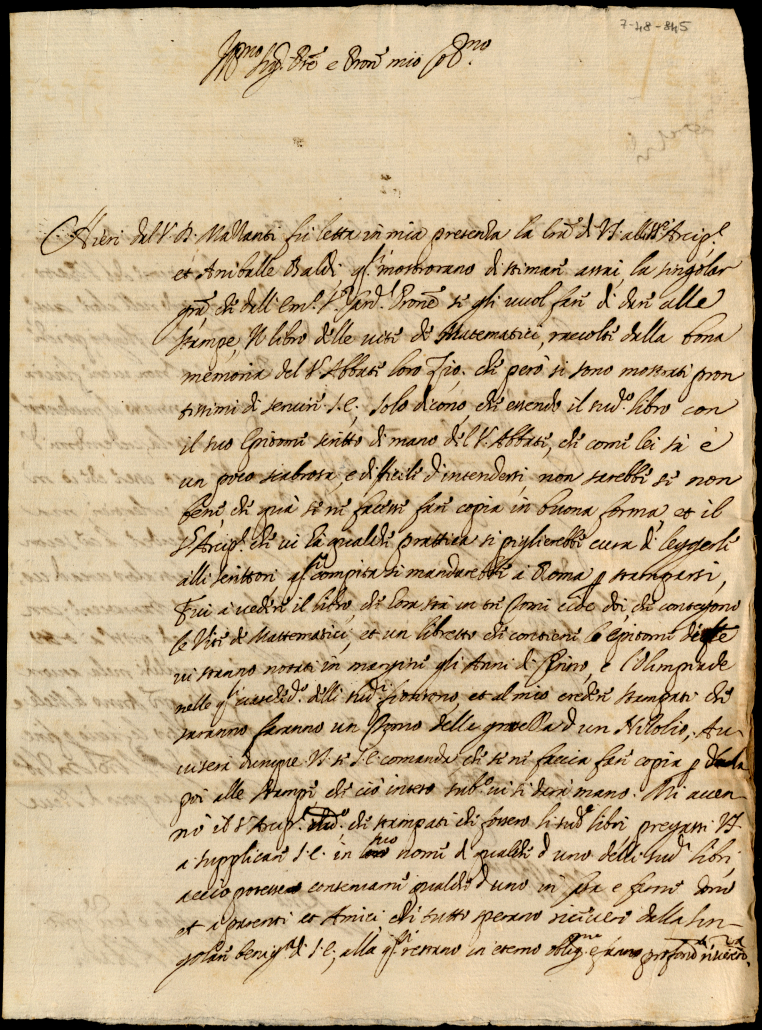 7-48-845
Ill.mo Sig.r e Pron mio
Hieri dal S. B. fu letta in mia presenza la lra di VS. all Arcip.e
et Aniballe Baldi q.li mostrorano di stimare assai la singolar
gra che dall Em.o S. Card. Prone si gli vuol fare di dare alle
stampe, Il libro delle vite de Matematici, raccolte dalla bona
memoria del S. Abbate loro Zio, che però si sono mostrati pron
tissimi di servire S.E., solo dicono che essendo il sud.o libro con
il suo Epitome scritto di mano del S. Abbate, che come lei sà è
un poco scabrosa, e difficile d'intendersi non sarebbe se non
bene che quà se ne facesse fare copia in buona forma et il
S. Arcip.e che vi hà qualche prattica si piglierebbe cura di leggerli
alli scrittori q.l compita si mandarebbe a Roma p stamparsi,
Fui a vedere il libro, che hora stà in tre Tomi cioè doi, che contengono
le Vite de Mattematici, et un libretto che contiene le Epitome delle
vi stanno notati in margine gli Anni di Christo, e l'Olimpiade
nelle q.li delli sud.i fiorirono, et al mio credere stampati che
saranno faranno un Tomo della grossezza d'un Nizolio, Au
visera dunque VS. se S.E. comanda che se ne faccia fare copia p darla
poi alle stampe che ciò inteso sub.o vi si darà mano. Mi accen
nò il S. Arcip.e che stampati che fossero li sud.i libri pregassi VS.
a supplicare S.E. in suo nome di qualche d'uno delli sud.i libri
acciò potesse conservarne qualche d'uno in casa e farne dono
et a parenti et Amici, che tutto sperano ricevere dalla sin
golare benig.tà di S.E., alla q.le restano in eterno oblig. e fanno profond.a riverenza.